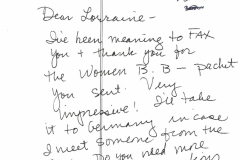 Dear Lorraine -
I've been meaning to FAX
you & thank you for
the Women B. B - packet
you sent. Very
impressive! I'll take
it to Germany in case
I meet someone from the
Do you need more